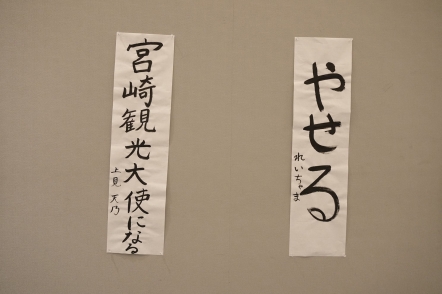 やせる
れいちゃま
宮崎観光大使になる
上見天乃